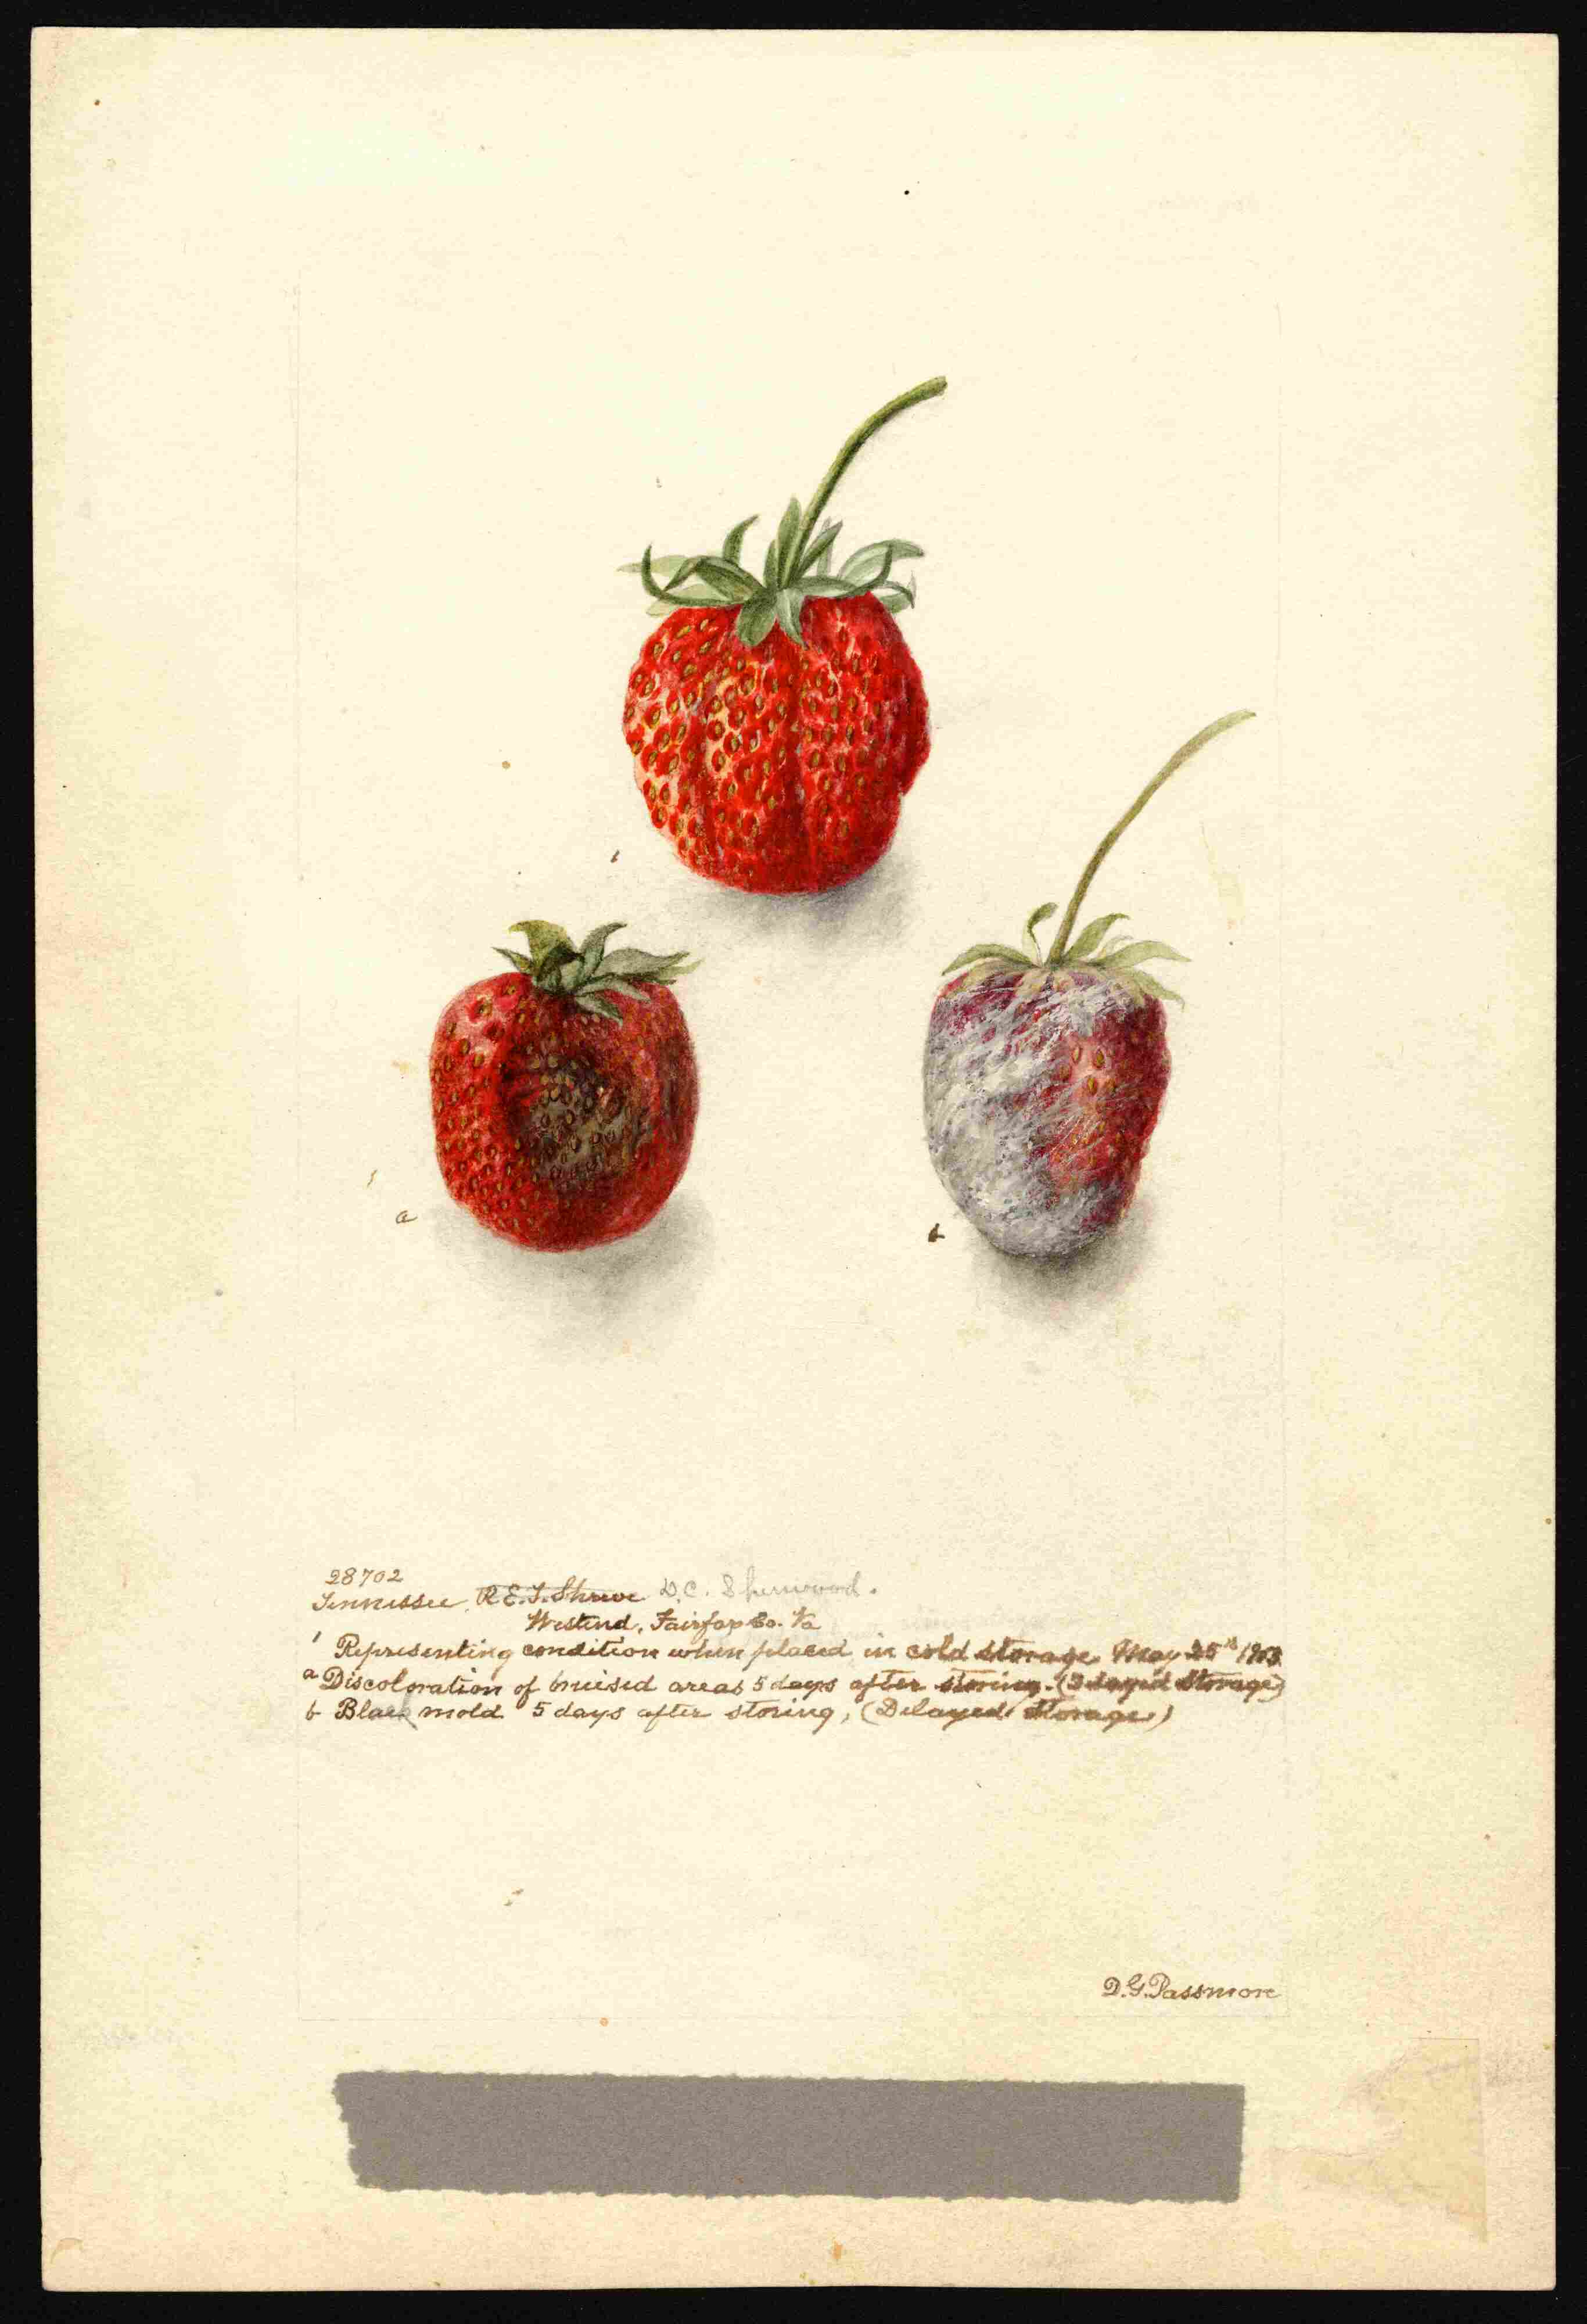 1
a
b
28702
Tennessee, R.E.T. Shreve D.C. Sherwood.
Westend, Fairfax Co. Va
1 Representing condition when placed in cold storage May 25th 1903
a Discoloration of bruised areas 5 days after storing. (Delayed Storage)
b Black mold 5 days after storing, (Delayed Storage)
D.G. Passmore